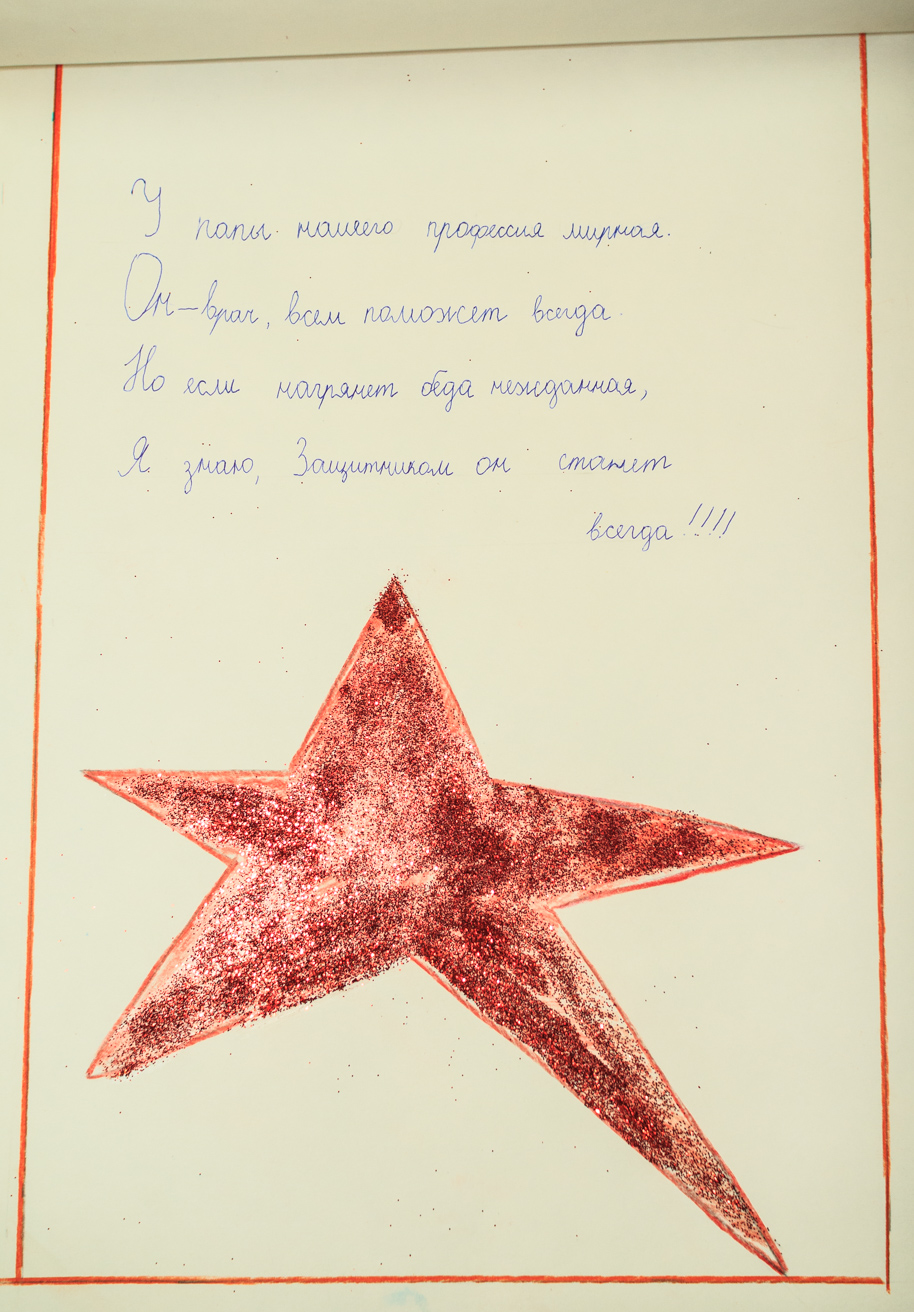 У папы нашего профессия мирная.
Он–врач, всем поможет всегда.
Но если нагрянет беда нежданная,
Я знаю, Защитником он станет
всегда!!!!